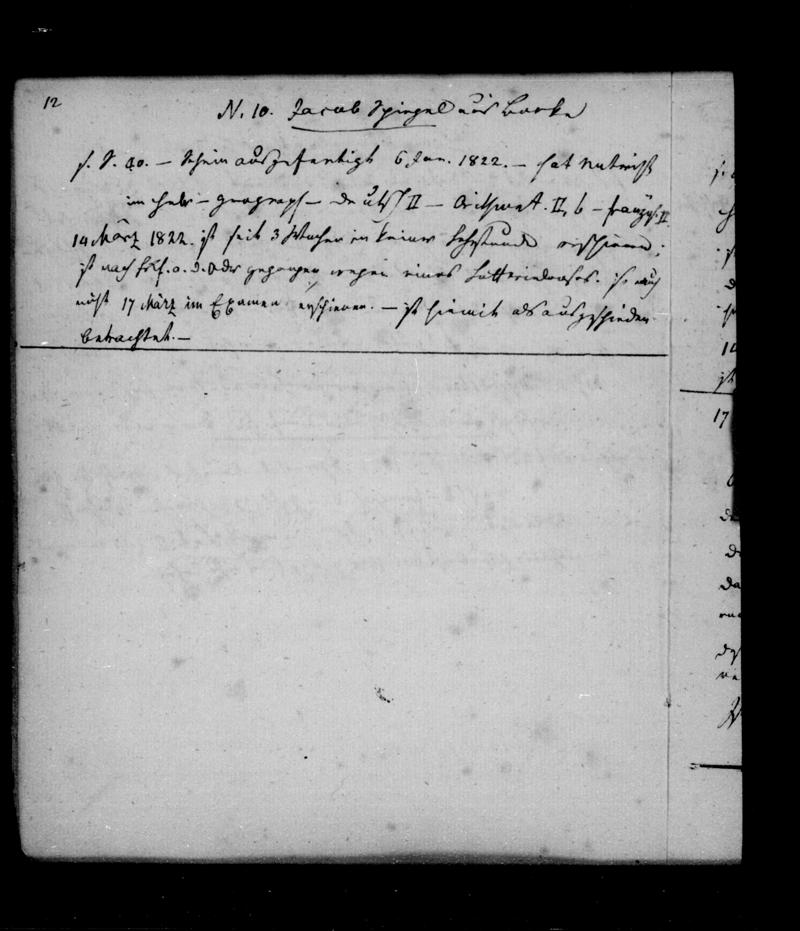 12
N. 10. Jacob Spiegel aus Borke
s. S. 40. — Schein ausgefertigt 6 Jan. 1822. — hat Unterricht
im Hebr. — geograph — deutsch II — Arithmet. II, b — französ. II
14 März 1822. ist seit 3 Wochen in keiner Lehrstunde erschienen;
ist nach Frkf. a. d. Oder gegangen wegen eines Lotterieloses. ist auch
nicht 17 März im Examen erschienen. — ist hiemit als ausgeschieden
betrachtet. —